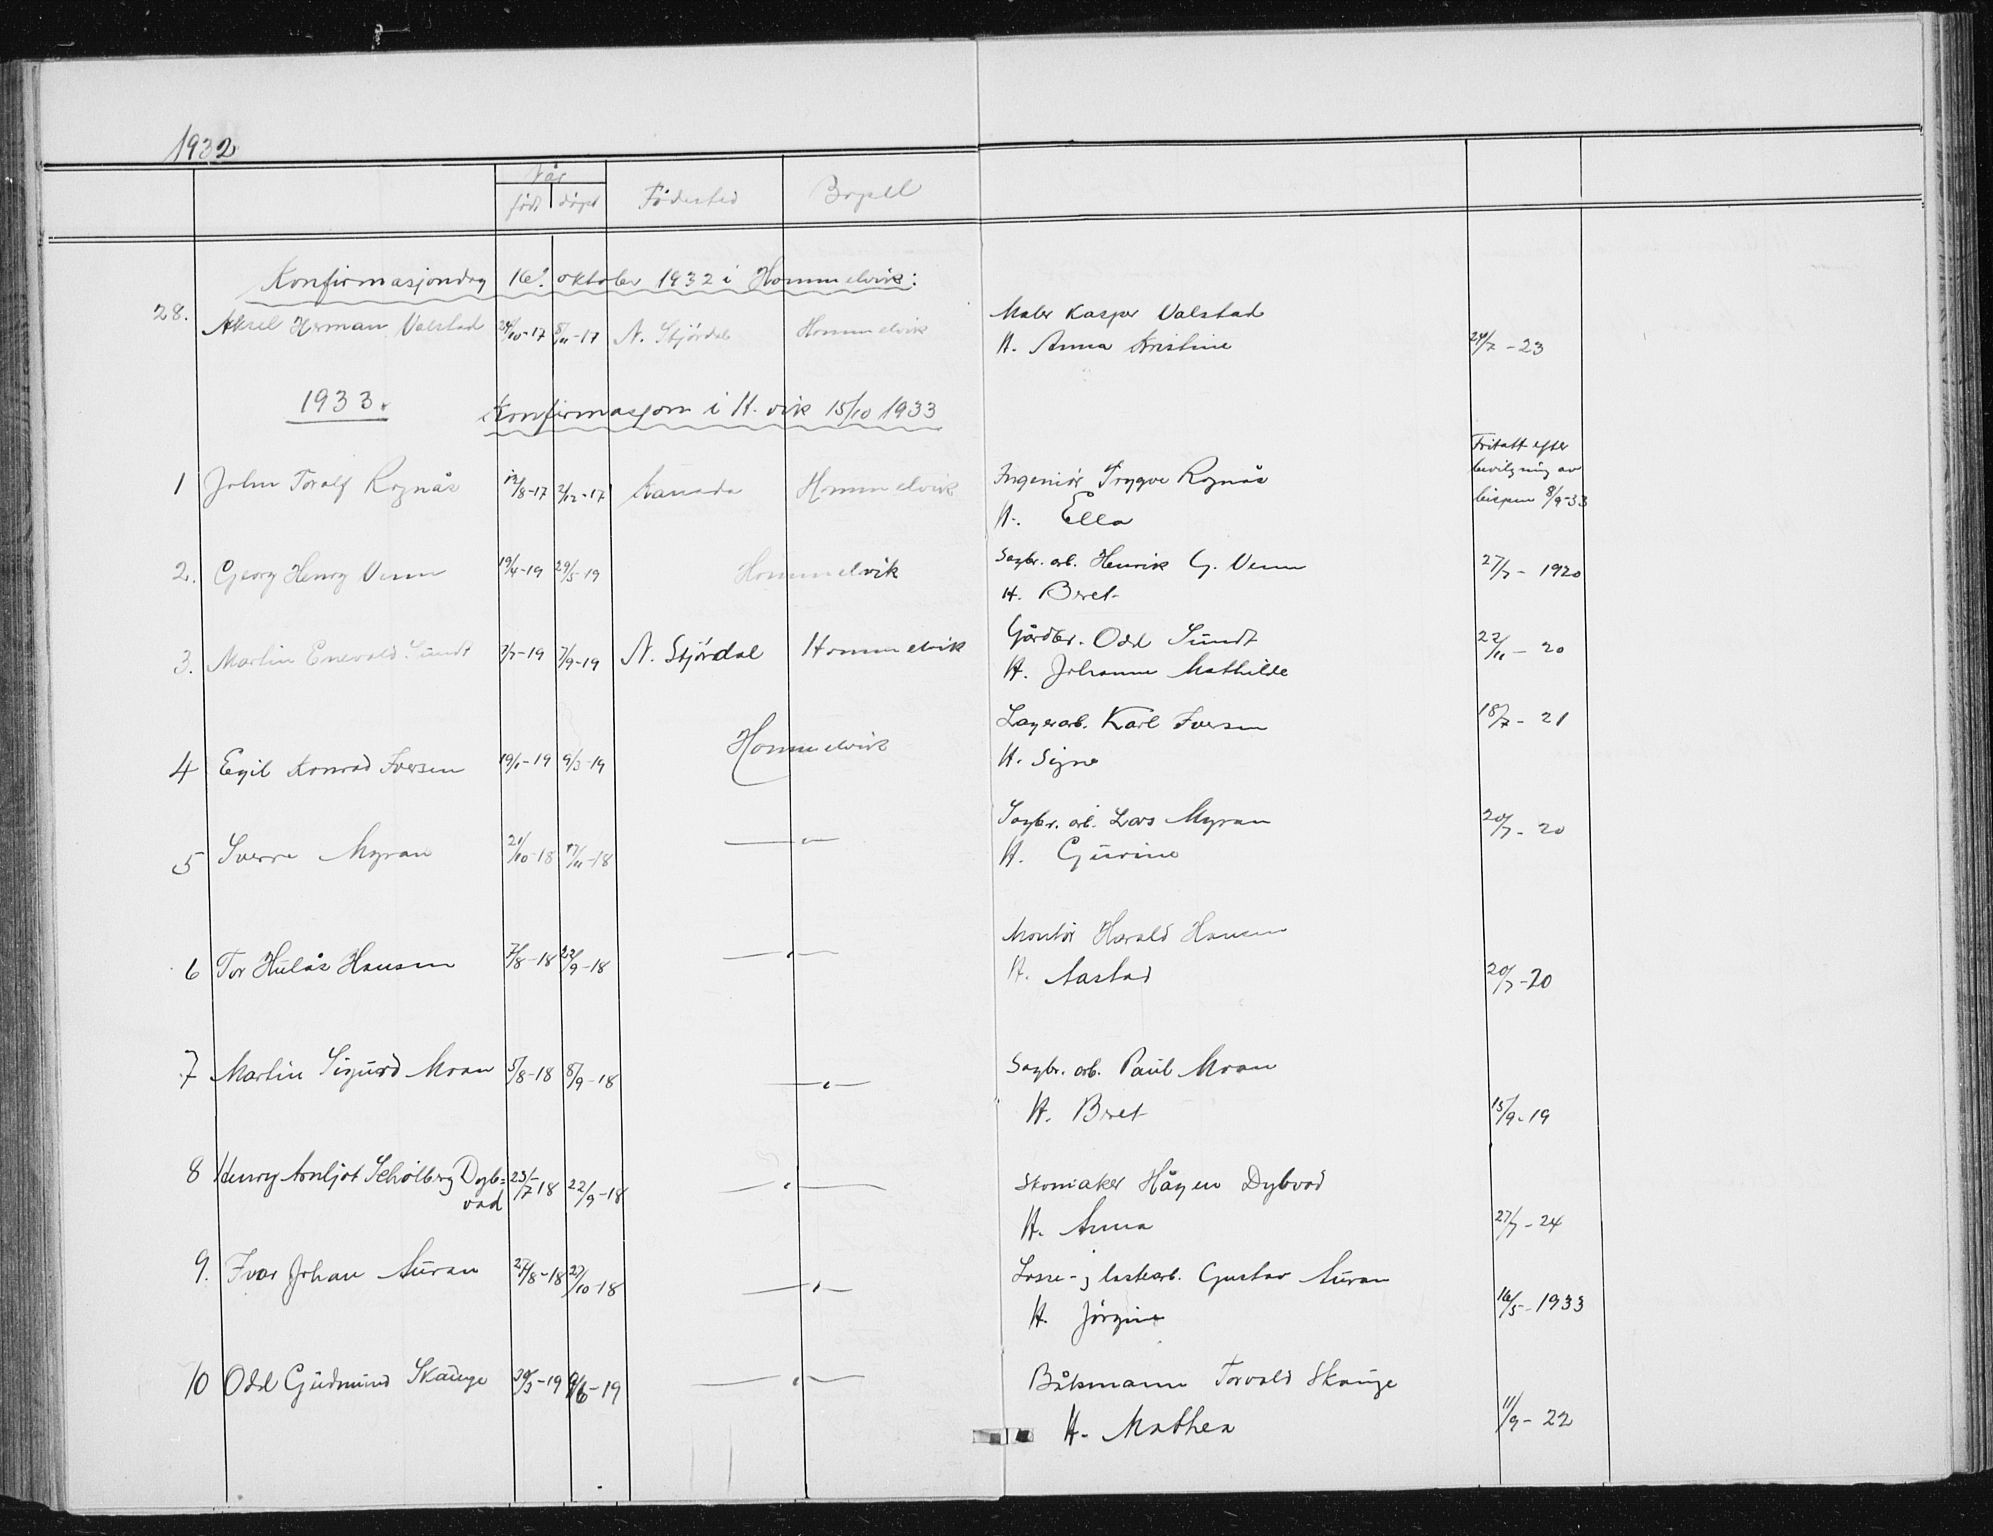 1932
Når
født døpt Fødested Bopell
Konfirmasjondag 16. oktober 1932 i Hommelvik:
28. Aksel Herman Valstad 24/10-17 8/11-17 N. Stjørdal Hommelvik Maler Kasper Valstad
H. Anna Kristine 24/7-23
1933. Konfirmasjon i H.vik 15/10 1933
Fritatt efter
bevilgning av
bispen 8/9-33
1 John Toralf Rognås 12/8-17 2/12-17 Kanada Hommelvik Ingeniør Trygve Rognås
H. Ella
2. Georg Henry Venn 19/4-19 29/5-19 Hommelvik Sagbr. arb. Henrik G. Venn 27/7-1920
H. Beret
3. Martin Enevald Sundt 7/7-19 7/9-19 N. Stjørdal Hommelvik Gårdbr. Odd Sundt 22/11-20
H. Johanne Mathilde
4 Egil Konrad Iversen 19/1-19 9/3-19 Hommelvik Lagerarb. Karl Iversen 18/7-21
H. Signe
5 Sverre Myran 21/10-18 17/11-18 —"— Sagbr. arb. Lars Myran 20/7-20
H. Gurine
6 Tor Hulås Hansen 7/8-18 22/9-18 —"— Montør Harald Hansen
H. Aastad 20/7-20
7 Martin Sigurd Moan 5/8-18 8/9-18 —"— Sagbr. arb. Paul Moan
H. Beret 15/9-19
8 Henry Arnljot Schølberg Dyb=
vad 23/7-18 22/9-18 —"— Skomaker Hågen Dybvad
H. Anna 27/7-24
9. Ivar Johan Auran 27/8-18 27/10-18 —"— Losse- og lastearb. Gustav Auran
H. Jørgine 16/5-1933
10 Odd Gudmund Skauge 30/3-19 9/6-19 —"— Båtsmann Torvald Skauge
H. Mathea 11/9-22